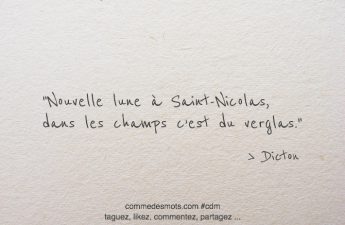 "Nouvelle lune à Saint-Nicolas,
dans les champs c'est du verglas."
> Dicton
commedesmots.com #cdm
taguez, likez, commentez, partagez ...